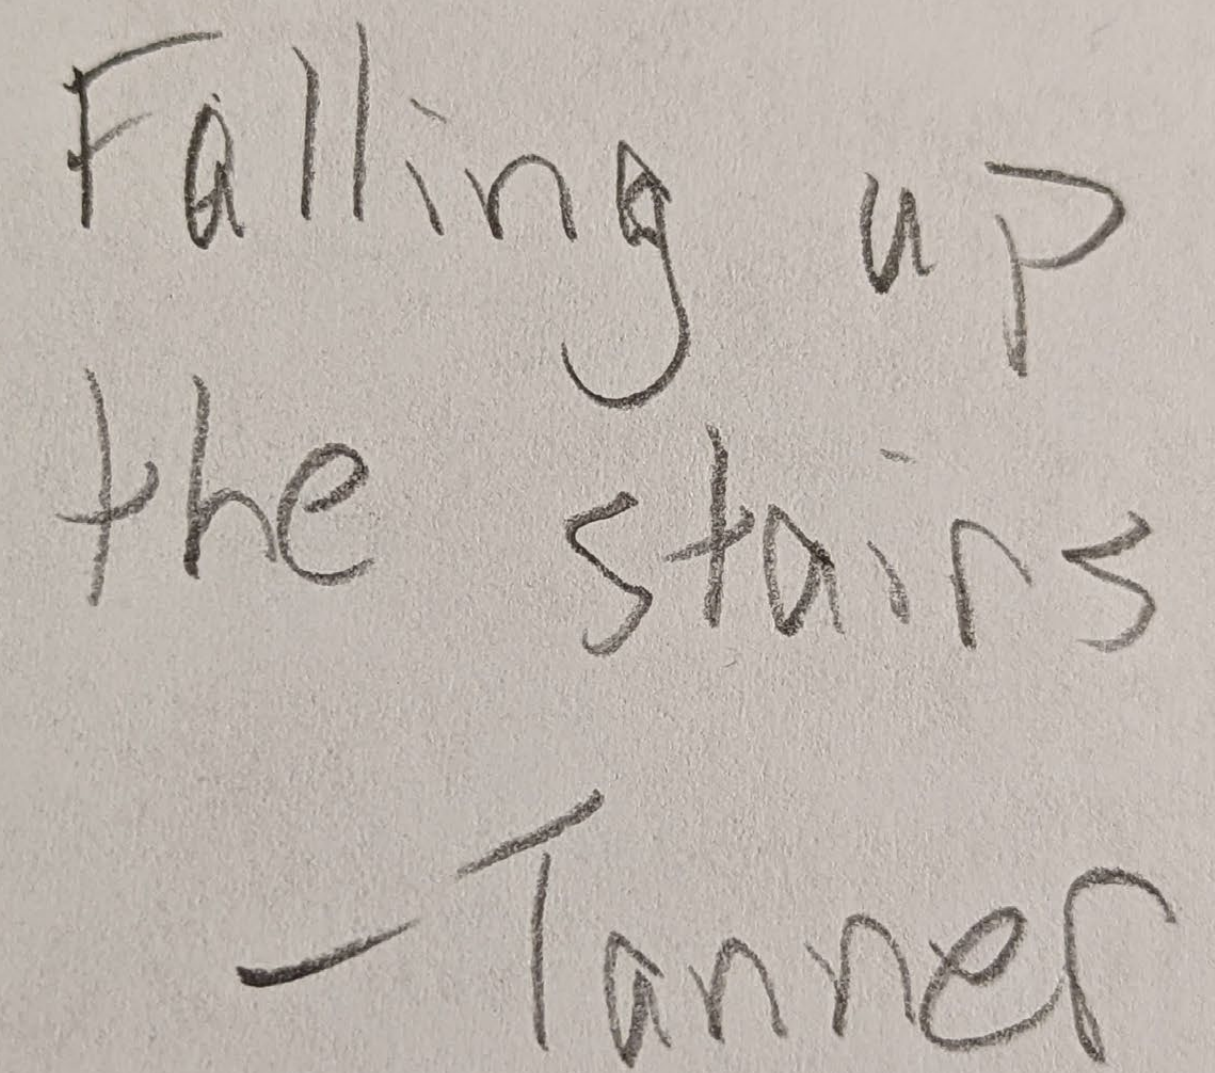 Falling up
the stairs
- Tanner